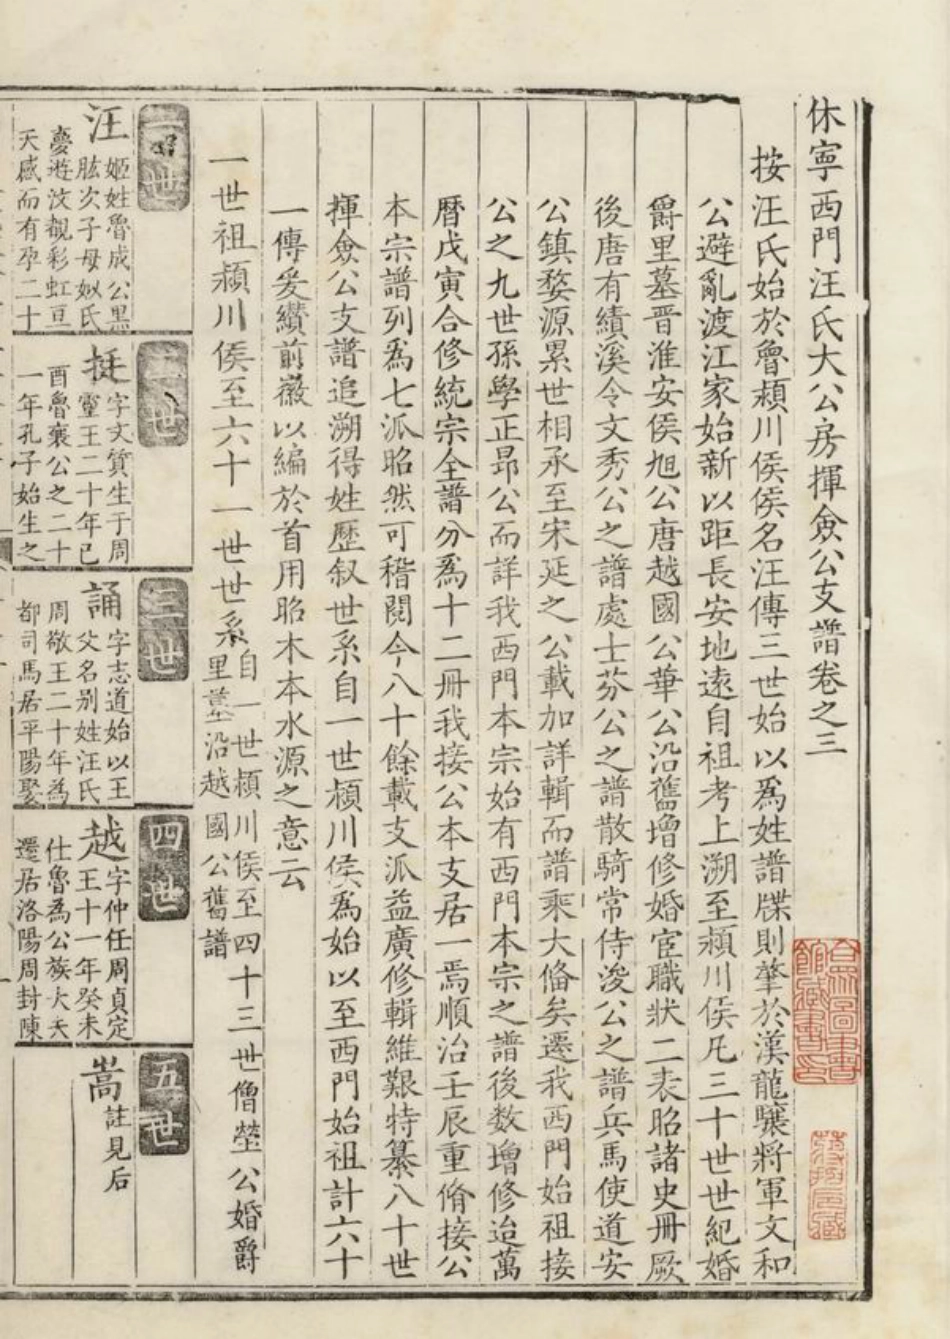 休寧西門汪氏大公房揮僉公支譜卷之三
按汪氏始於魯潁川侯侯名汪傳三世始以爲姓譜牒則肇於漢龍驤將軍文和
公避亂渡江家始新以距長安地遠自祖考上溯至潁川侯凡三十世世紀婚
爵里墓晉淮安侯旭公唐越國公華公沿舊增修婚宦職狀二表昭諸史冊厥
後唐有績溪令文秀公之譜處士芬公之譜散騎常侍浚公之譜兵馬使道安
公鎮婺源累世相承至宋延之公載加詳輯而譜乘大俻矣遷我西門始祖接
公之九世孫學正昻公而詳我西門本宗始有西門本宗之譜後数增修迨萬
曆戊寅合修統宗全譜分爲十二冊我接公本支居一焉順治壬辰重脩接公
本宗譜列爲七派昭然可稽閱今八十餘載支派益廣修輯維艱特纂八十世
揮僉公支譜追溯得姓歷叙世系自一世潁川侯爲始以至西門始祖計六十
一傳爰纘前徽以編於首用昭木本水源之意云
一世祖潁川侯至六十一世世系
自一世潁川侯至四十三世僧瑩公婚爵
里墓沿越國公舊譜
一世
汪
姬姓魯成公黑
肱次子母姒氏
夀遊汶觀彩虹亘
天感而有孕二十
二世
挺
字文質生于周
靈王二十年己
酉魯襄公之二十
一年孔子始生之
三世
誦
字志道始以王
父名别姓汪氏
周敬王二十年為
都司馬居平陽娶
四世
越
字仲任周貞定
王十一年癸未
仕魯為公族大夫
遷居洛陽周封陳
五世
嵩
註見后